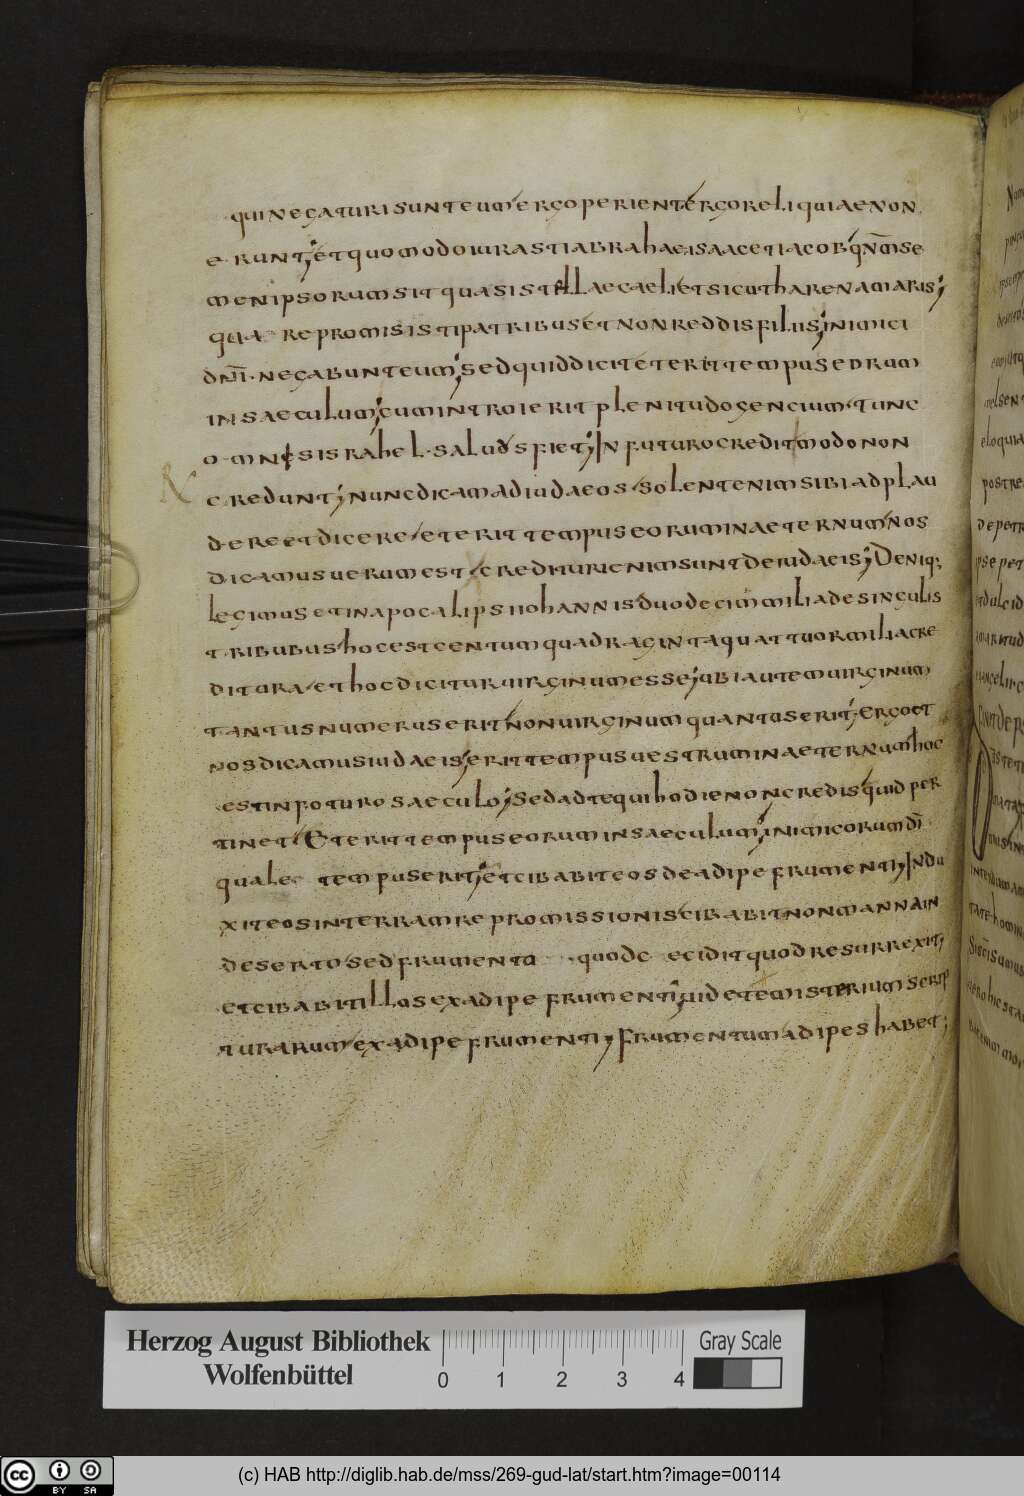 qui negaturi sunt eum ergo perient ergo reliquiae non
erunt; et quomodo iurasti abrahae isaac et iacob qnm se
men ipsorum sit quasi stellae caeli et sicut harena maris;
qua repromisisti patribus et non reddis filiis; inimici
dni negabunt eum; sed quid dicit et erit tempus eorum
in saeculum; cum introierit plenitudo gencium tunc
omnes israhel saluus fiet; In futuro credit modo non
credunt; nunc dicam ad iudaeos solent enim sibi adplau
dere et dicere et erit tempus eorum in aeternum nos
dicamus uerum est credituri enim sunt de iudaeis; Deniq;
legimus et in apocalipsi iohannis duodecim milia de singulis
tribubus hoc est centum quadraginta quattuor milia cre
ditura et hoc dicitur uirginum esse; ubi autem uirginum
tantus numerus erit non uirginum quantus erit; Ergo et
nos dicamus iudaeis; erit tempus uestrum in aeternum hoc
est in foturo saeculo; Sed ad te qui hodie non credis quid per
tinet; Et erit tempus eorum in saeculum; inimicorum di
quale tempus erit; et cibabit eos de adipe frumenti; Indu
xit eos in terram repromissionis cibabit non manna in
deserto sed frumento quod cecidit quod resurrexit;
et cibabit illos ex adipe frumenti; uidete misterium scrip
turarum ex adipe frumenti; Frumentum adipes habet;
Herzog August Bibliothek
Wolfenbüttel
0 1 2 3 4
Gray Scale
cc BY SA
(c) HAB http://diglib.hab.de/mss/269-gud-lat/start.htm?image=00114